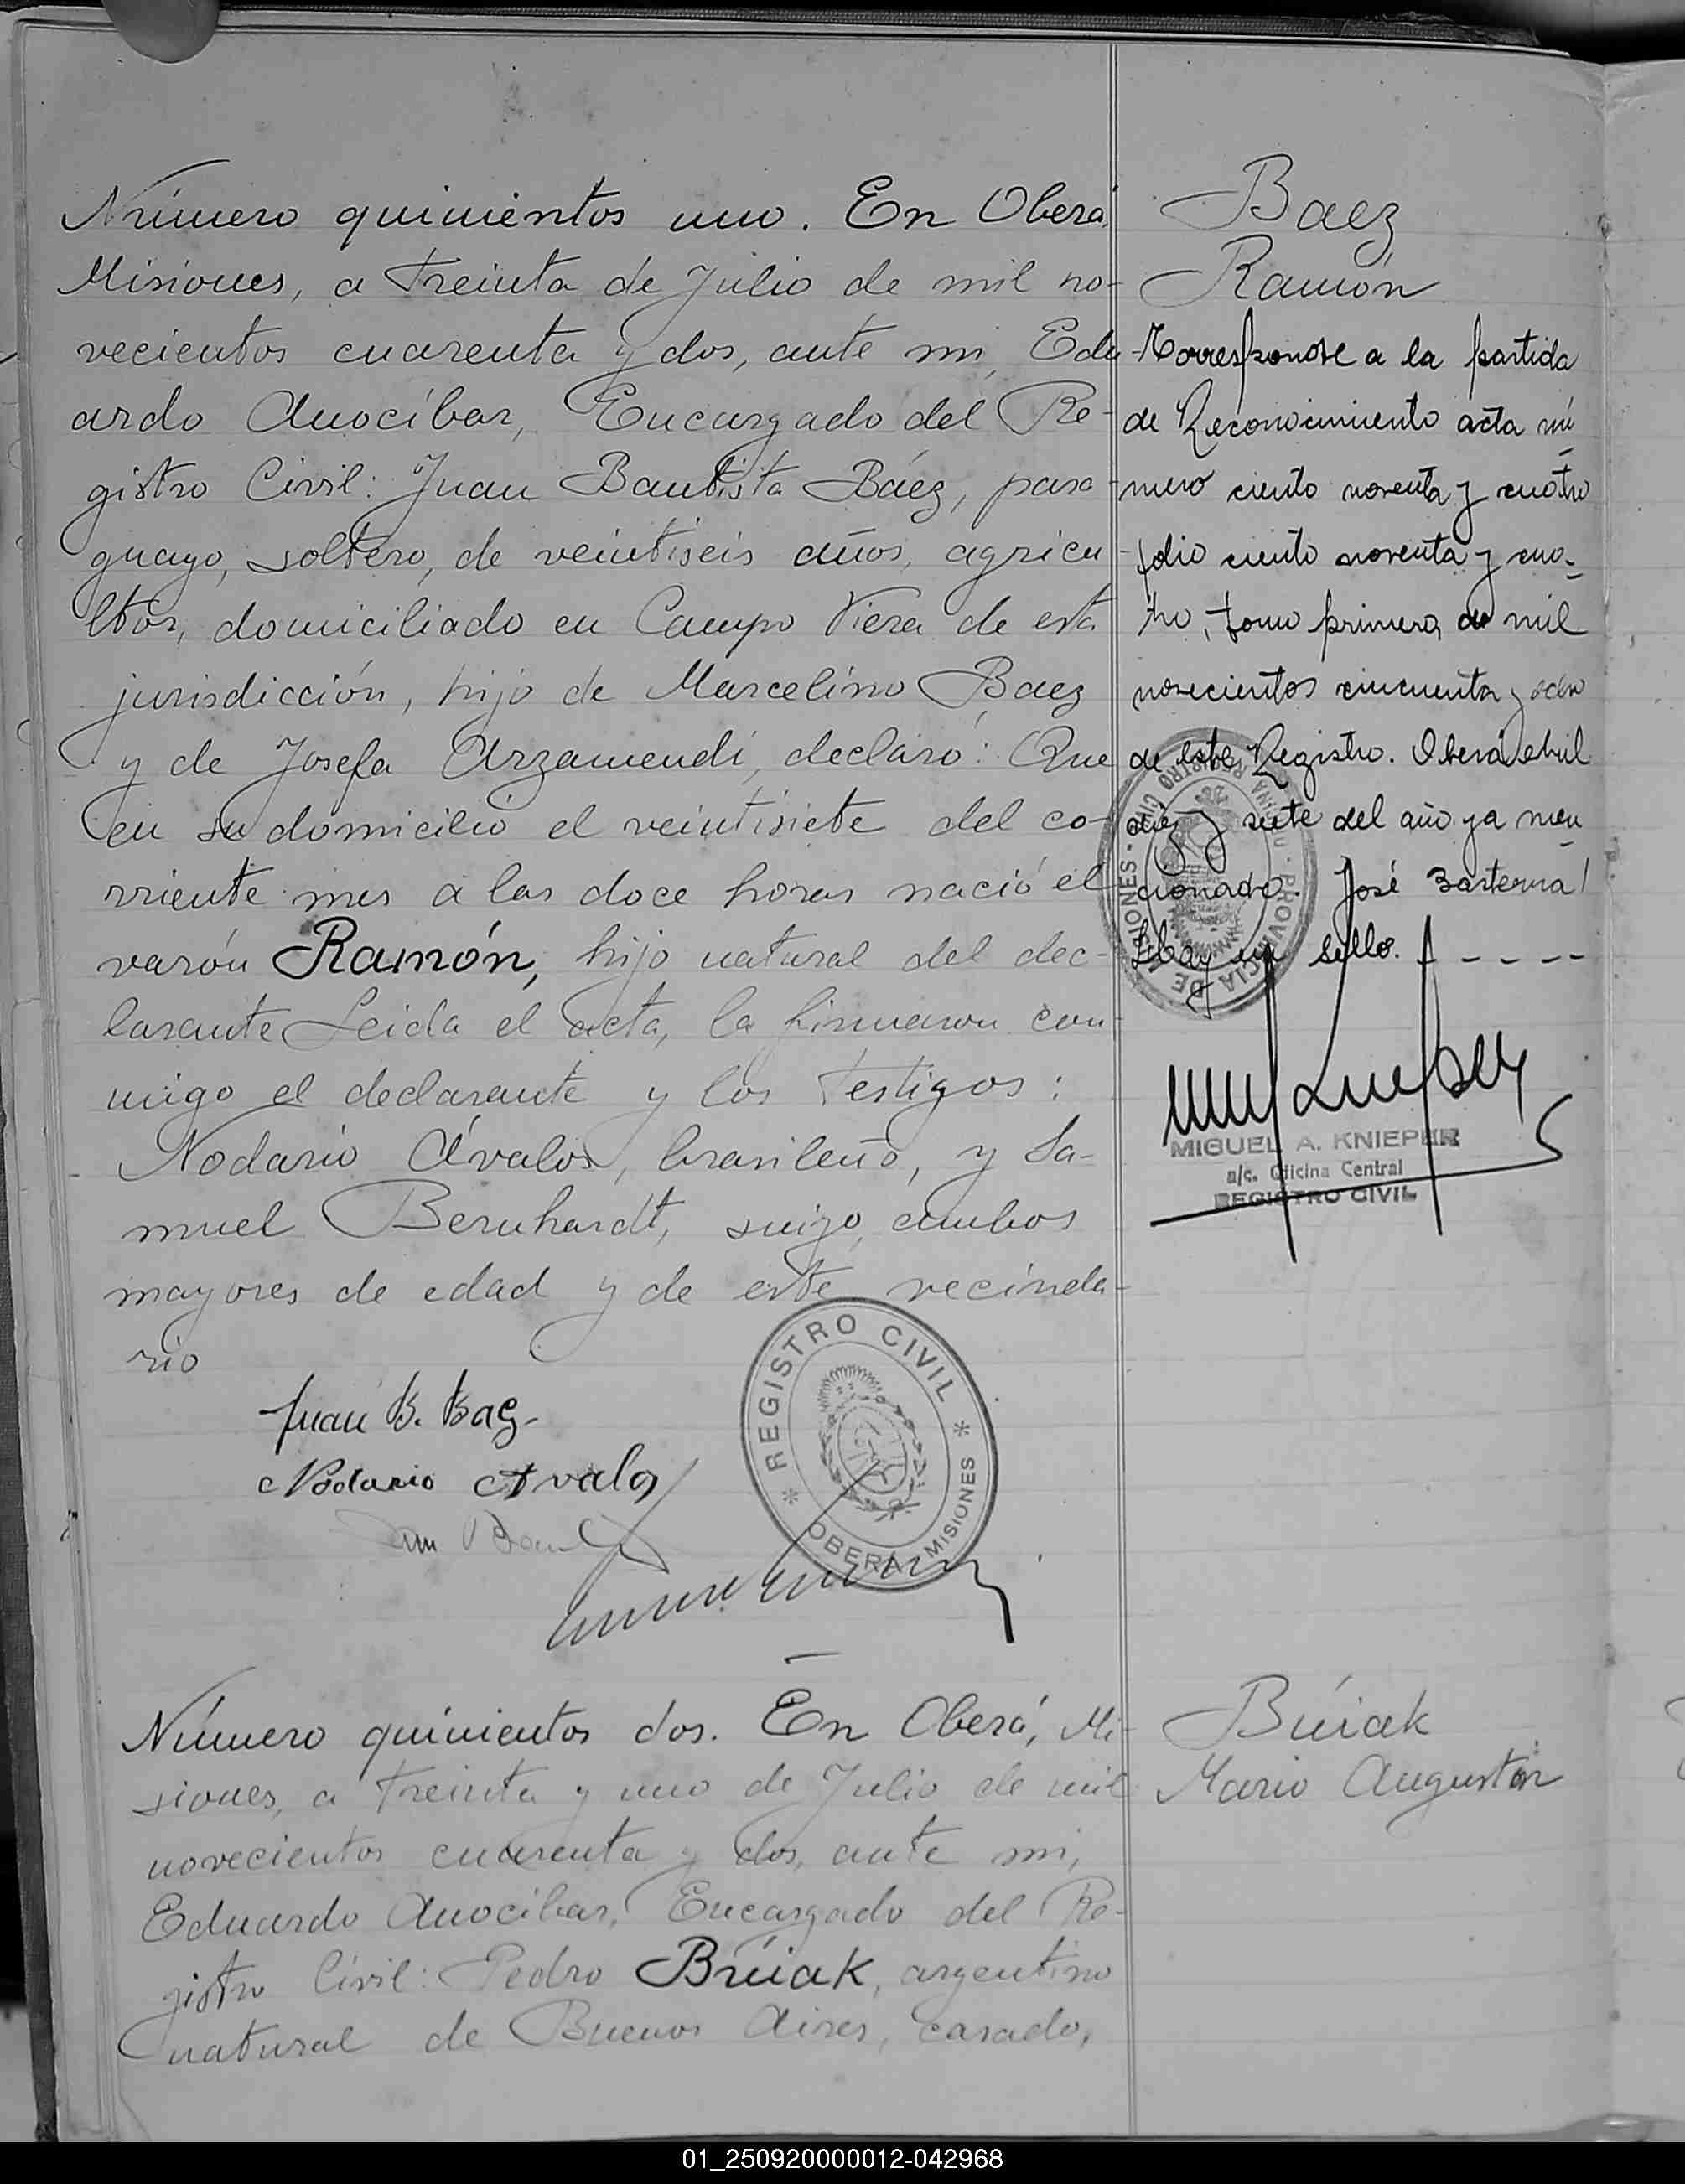 Número quinientos uno. En Oberá,
Misiones, a treinta de Julio de mil no-
vecientos cuarenta y dos, ante mi, Edu-
ardo Anocíbar, Encargado del Re-
gistro Civil: Juan Bautista Báez, para-
guayo, soltero, de veintiseis años, agricu-
ltor, domiciliado en Campo Viera de esta
jurisdicción, hijo de Marcelino Baez
y de Josefa Arzamendi, declaró: Que
en su domicilio el veintisiete del co-
rriente mes a las doce horas nació el
varón Ramón, hijo natural del dec-
larante Leida el acta, la firmaron con-
migo el declarante y los testigos:
Nodario Ávalos, brasileño, y Sa-
muel Bernhardt, suizo, ambos
mayores de edad y de este vecinda-
rio
Juan B. Baez
Nodario Avalos
REGISTRO CIVIL
* OBERÁ MISIONES *
Baez
Ramón
Corresponde a la partida
de Reconocimiento acta nú
mero ciento noventa y cuatro
folio ciento noventa y cua-
tro, tomo primero, de mil
novecientos cincuenta y ocho
de este Registro. Oberá abril
diez y siete del año ya men
cionado. José Basterra
Hay un sello. - - - - -
PROVINCIA DE MISIONES
MIGUEL A. KNIEPER
a/c. Oficina Central
REGISTRO CIVIL
Número quinientos dos. En Oberá, Mi-
siones, a treinta y uno de Julio de mil
novecientos cuarenta y dos, ante mi,
Eduardo Anocíbar, Encargado del Re-
gistro Civil: Pedro Búiak, argentino
natural de Buenos Aires, casado,
Búiak
Mario Augustin
01_250920000012-042968